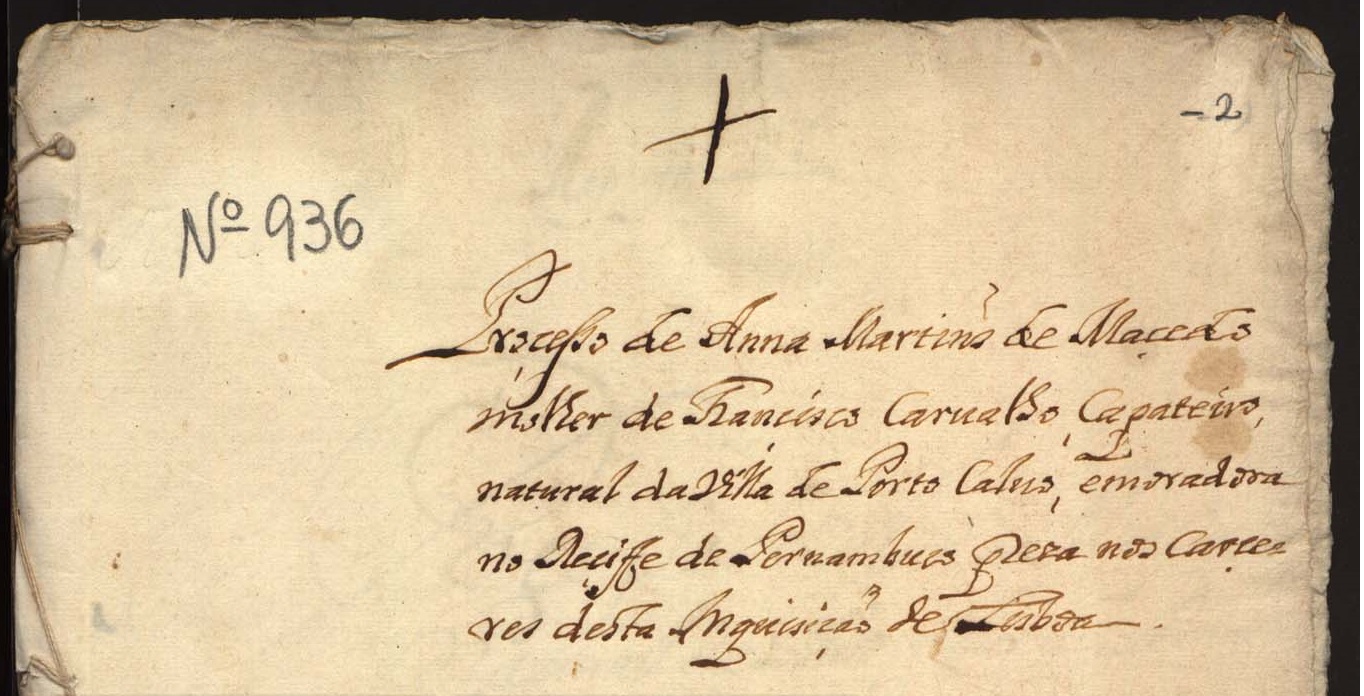 - 2
Nº 936
Processo de Anna Martins de Macedo
molher de Francisco Carualho, Çapateiro,
natural da Villa de Porto Caluo, e moradora
no Reciffe de Pernambuco preza nos Carce=
res desta Inquisição de Lisboa.